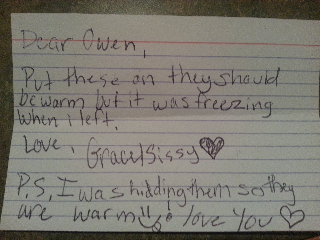 Dear Owen,
Put these on they should
be warm but it was freezing
when i left.
Love, Grace/Sissy ♥
P.S. I was hidding them so they
are warm!! love You ♡